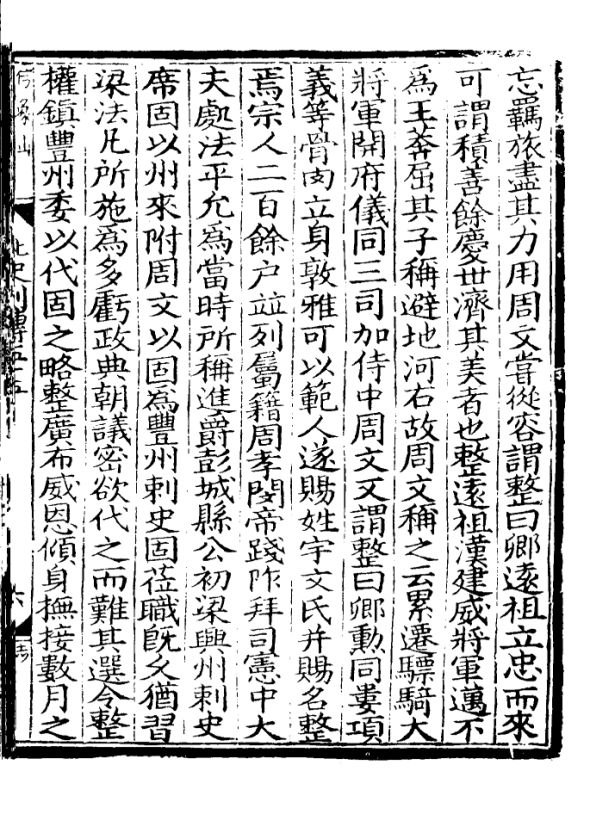 忘羈旅盡其力用周文嘗從容謂整曰卿遠祖立忠而來
可謂積善餘慶世濟其美者也整遠祖漢建威將軍邁不
爲王莽屈其子稱避地河右故周文稱之云累遷驃騎大
將軍開府儀同三司加侍中周文又謂整曰卿勳同婁項
義等骨肉立身敦雅可以範人遂賜姓宇文氏并賜名整
焉宗人二百餘户竝列屬籍周孝閔帝踐阼拜司憲中大
夫處法平允爲當時所稱進爵彭城縣公初梁興州刺史
席固以州來附周文以固爲豐州刺史固莅職旣久猶習
梁法凡所施爲多虧政典朝議密欲代之而難其選令整
權鎮豐州委以代固之略整廣布威恩傾身撫接數月之
史列傳五十五
六